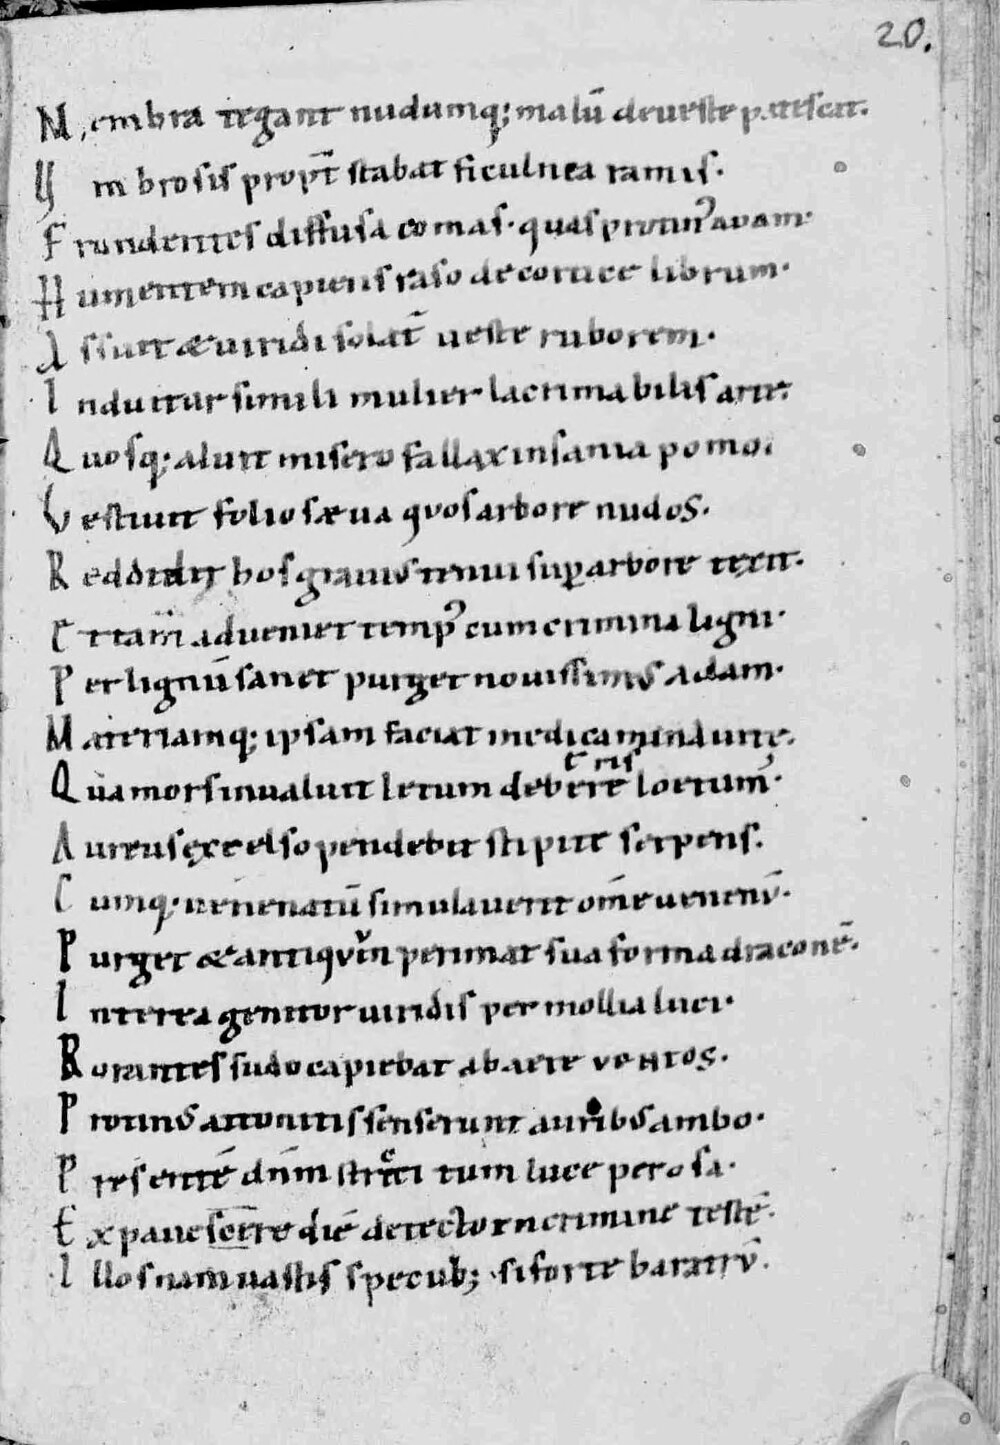 20.
Membra tegant nudumq; malū deueste patescat.
Vmbrosis propt̄ stabat ficulnea ramis.
Frondentes diffusa comas. quas protin᾽ adam.
Humentem capiens raso de cortice librum.
Assuit & uiridi solat̄ ueste ruborem.
Induitur simili mulier lacrimabilis arte.
Quosq; aluit misero fallax insania pomo.
Vestiuit folio sæua quos arbore nudos.
Reddidit hos grauis tenui sup arbore texit.
Et tam̄ adueniet temp᾽ cum crimina ligni.
Per lignū sanet purget nouissimus adam.
Materiamq; ipsam faciat medicamina uitę.
Qua mors inualuit letum
Aureus ęxcelso pendebit stipite serpens.
Cumq; uenenatū simulauerit om̄e uenenū.
Purget & antiquūm perimat sua forma draconē.
Interea genitor uiridis per mollia luci.
Rorantes sudo capiebat ab aere ventos.
Protinus attonitis senserunt auribus ambo.
Presentē dnm̄ stricti tum luce perosa.
diē detector crimine testē.
Illos nam uastis specub; si forte baratrū.